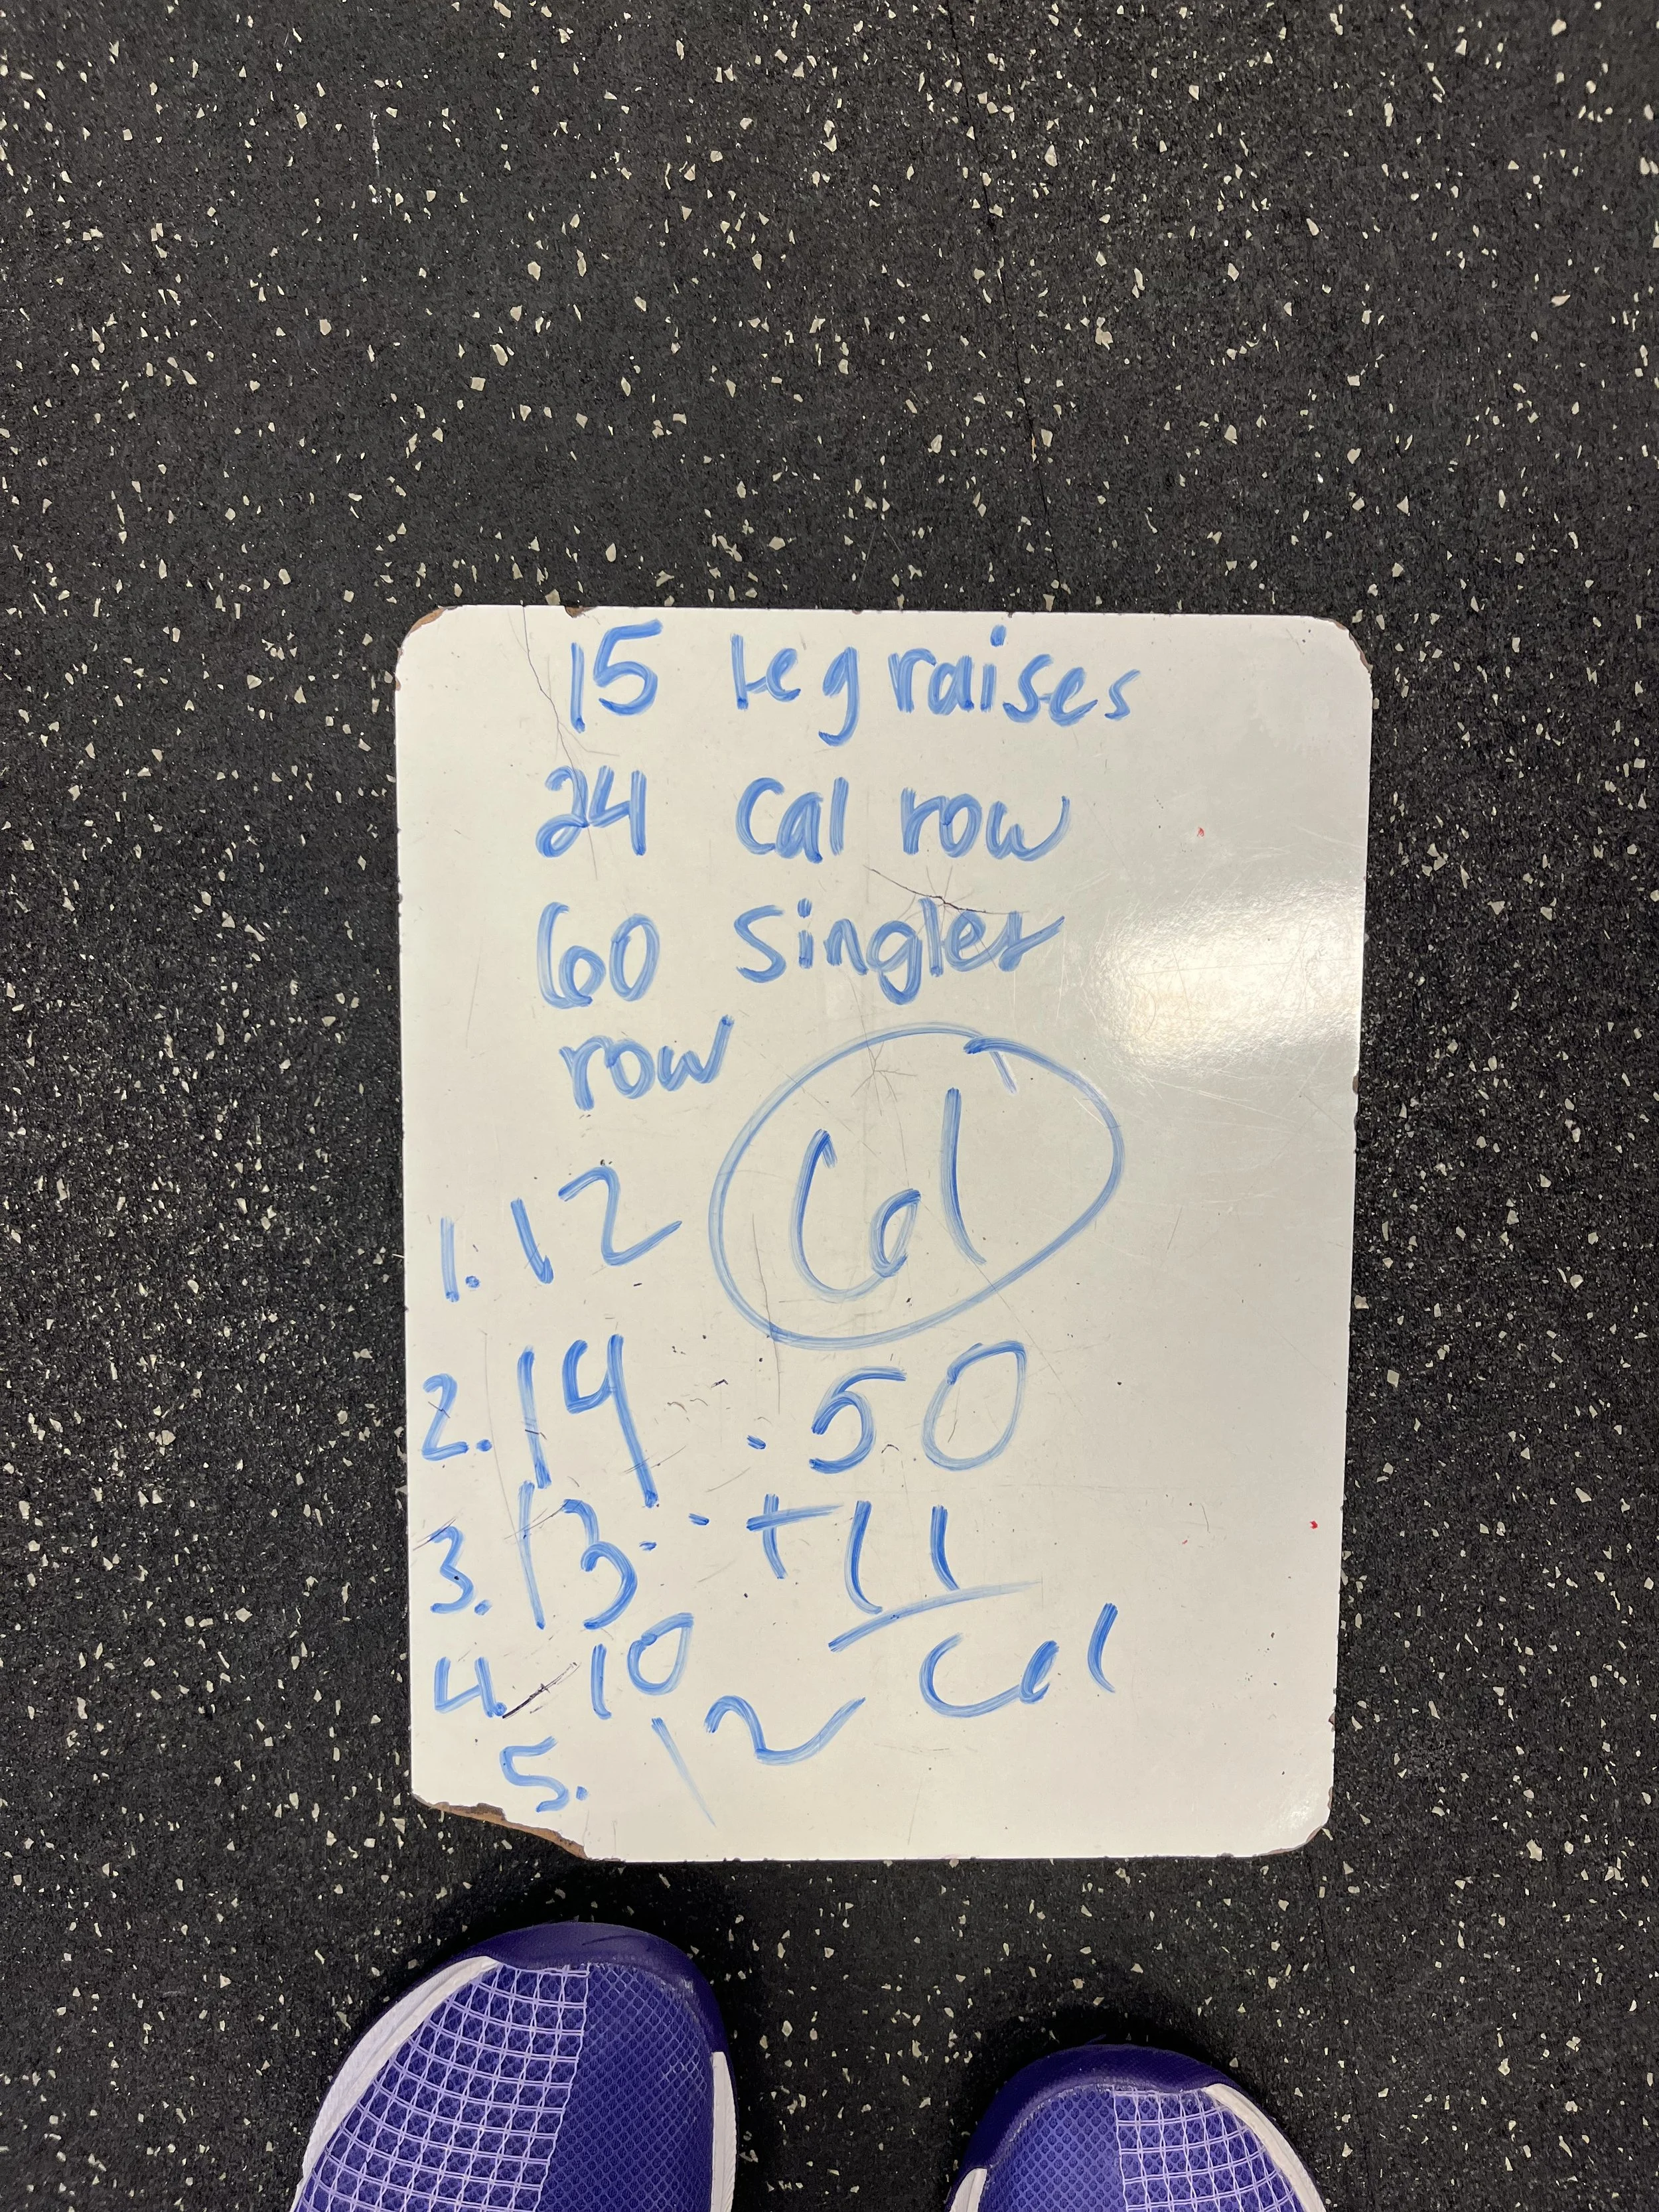 15 leg raises
24 Cal row
60 singles
row
Cal
1. 12
2. 14 . 50
3. 13 . - + 11
4. 10 Cal
5. 12